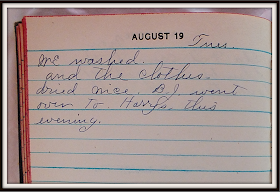 AUGUST 19 Tues.
We washed.
and the clothes
dried nice. B.J. went
over to Harry's this
evening.